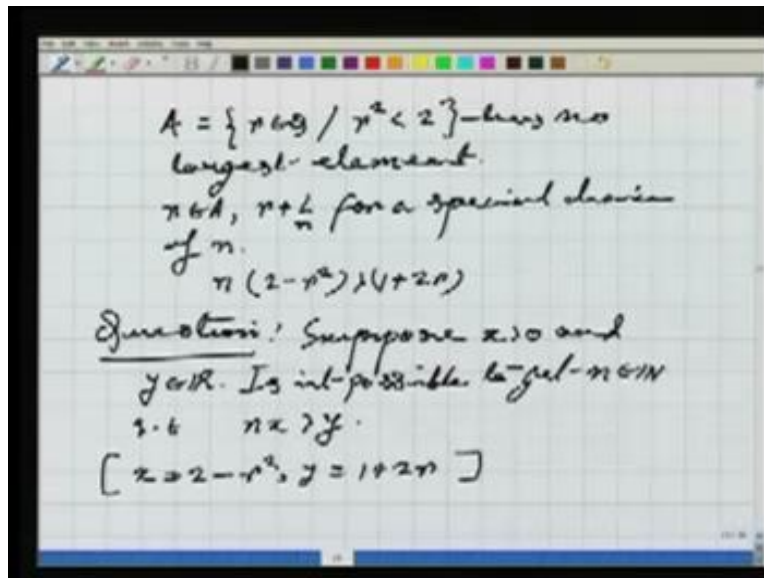 A = { r ∈ Q / r² < 2 } - has no
largest element.
r ∈ A, r + 1/n for a special choice
of n.
n (2 - r²) > (1 + 2r)
Question: Suppose x > 0 and
y ∈ IR. Is it possible to get n ∈ IN
s.t nx > y.
[ x = 2 - r², y = 1 + 2r ]